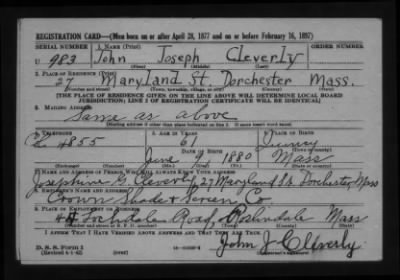 REGISTRATION CARD—(Men born on or after April 28, 1877 and on or before February 16, 1897)
SERIAL NUMBER 1. NAME (Print) ORDER NUMBER
U 983 John Joseph Cleverly
(First) (Middle) (Last)
2. PLACE OF RESIDENCE (Print)
27 Maryland St. Dorchester Mass.
(Number and street) (Town, township, village, or city) (County) (State)
[THE PLACE OF RESIDENCE GIVEN ON THE LINE ABOVE WILL DETERMINE LOCAL BOARD
JURISDICTION; LINE 2 OF REGISTRATION CERTIFICATE WILL BE IDENTICAL]
3. MAILING ADDRESS
Same as above
[Mailing address if other than place indicated on line 2. If same insert word same]
4. TELEPHONE 5. AGE IN YEARS 6. PLACE OF BIRTH
4855 61 Quincy
DATE OF BIRTH
June 1880 Mass
(Exchange) (Number) (Mo.) (Day) (Yr.) (State or country)
7. NAME AND ADDRESS OF PERSON WHO WILL ALWAYS KNOW YOUR ADDRESS
Josephine Cleverly 27 Maryland St. Dorchester Mass
8. EMPLOYER'S NAME AND ADDRESS
Crown Shade & Screen Co.
9. PLACE OF EMPLOYMENT OR BUSINESS
Lochdale Road, Roslindale Mass
(Number and street or R. F. D. number) (Town) (County) (State)
I AFFIRM THAT I HAVE VERIFIED ABOVE ANSWERS AND THAT THEY ARE TRUE.
D. S. S. Form 1
(Revised 4-1-42) (over)
John J Cleverly